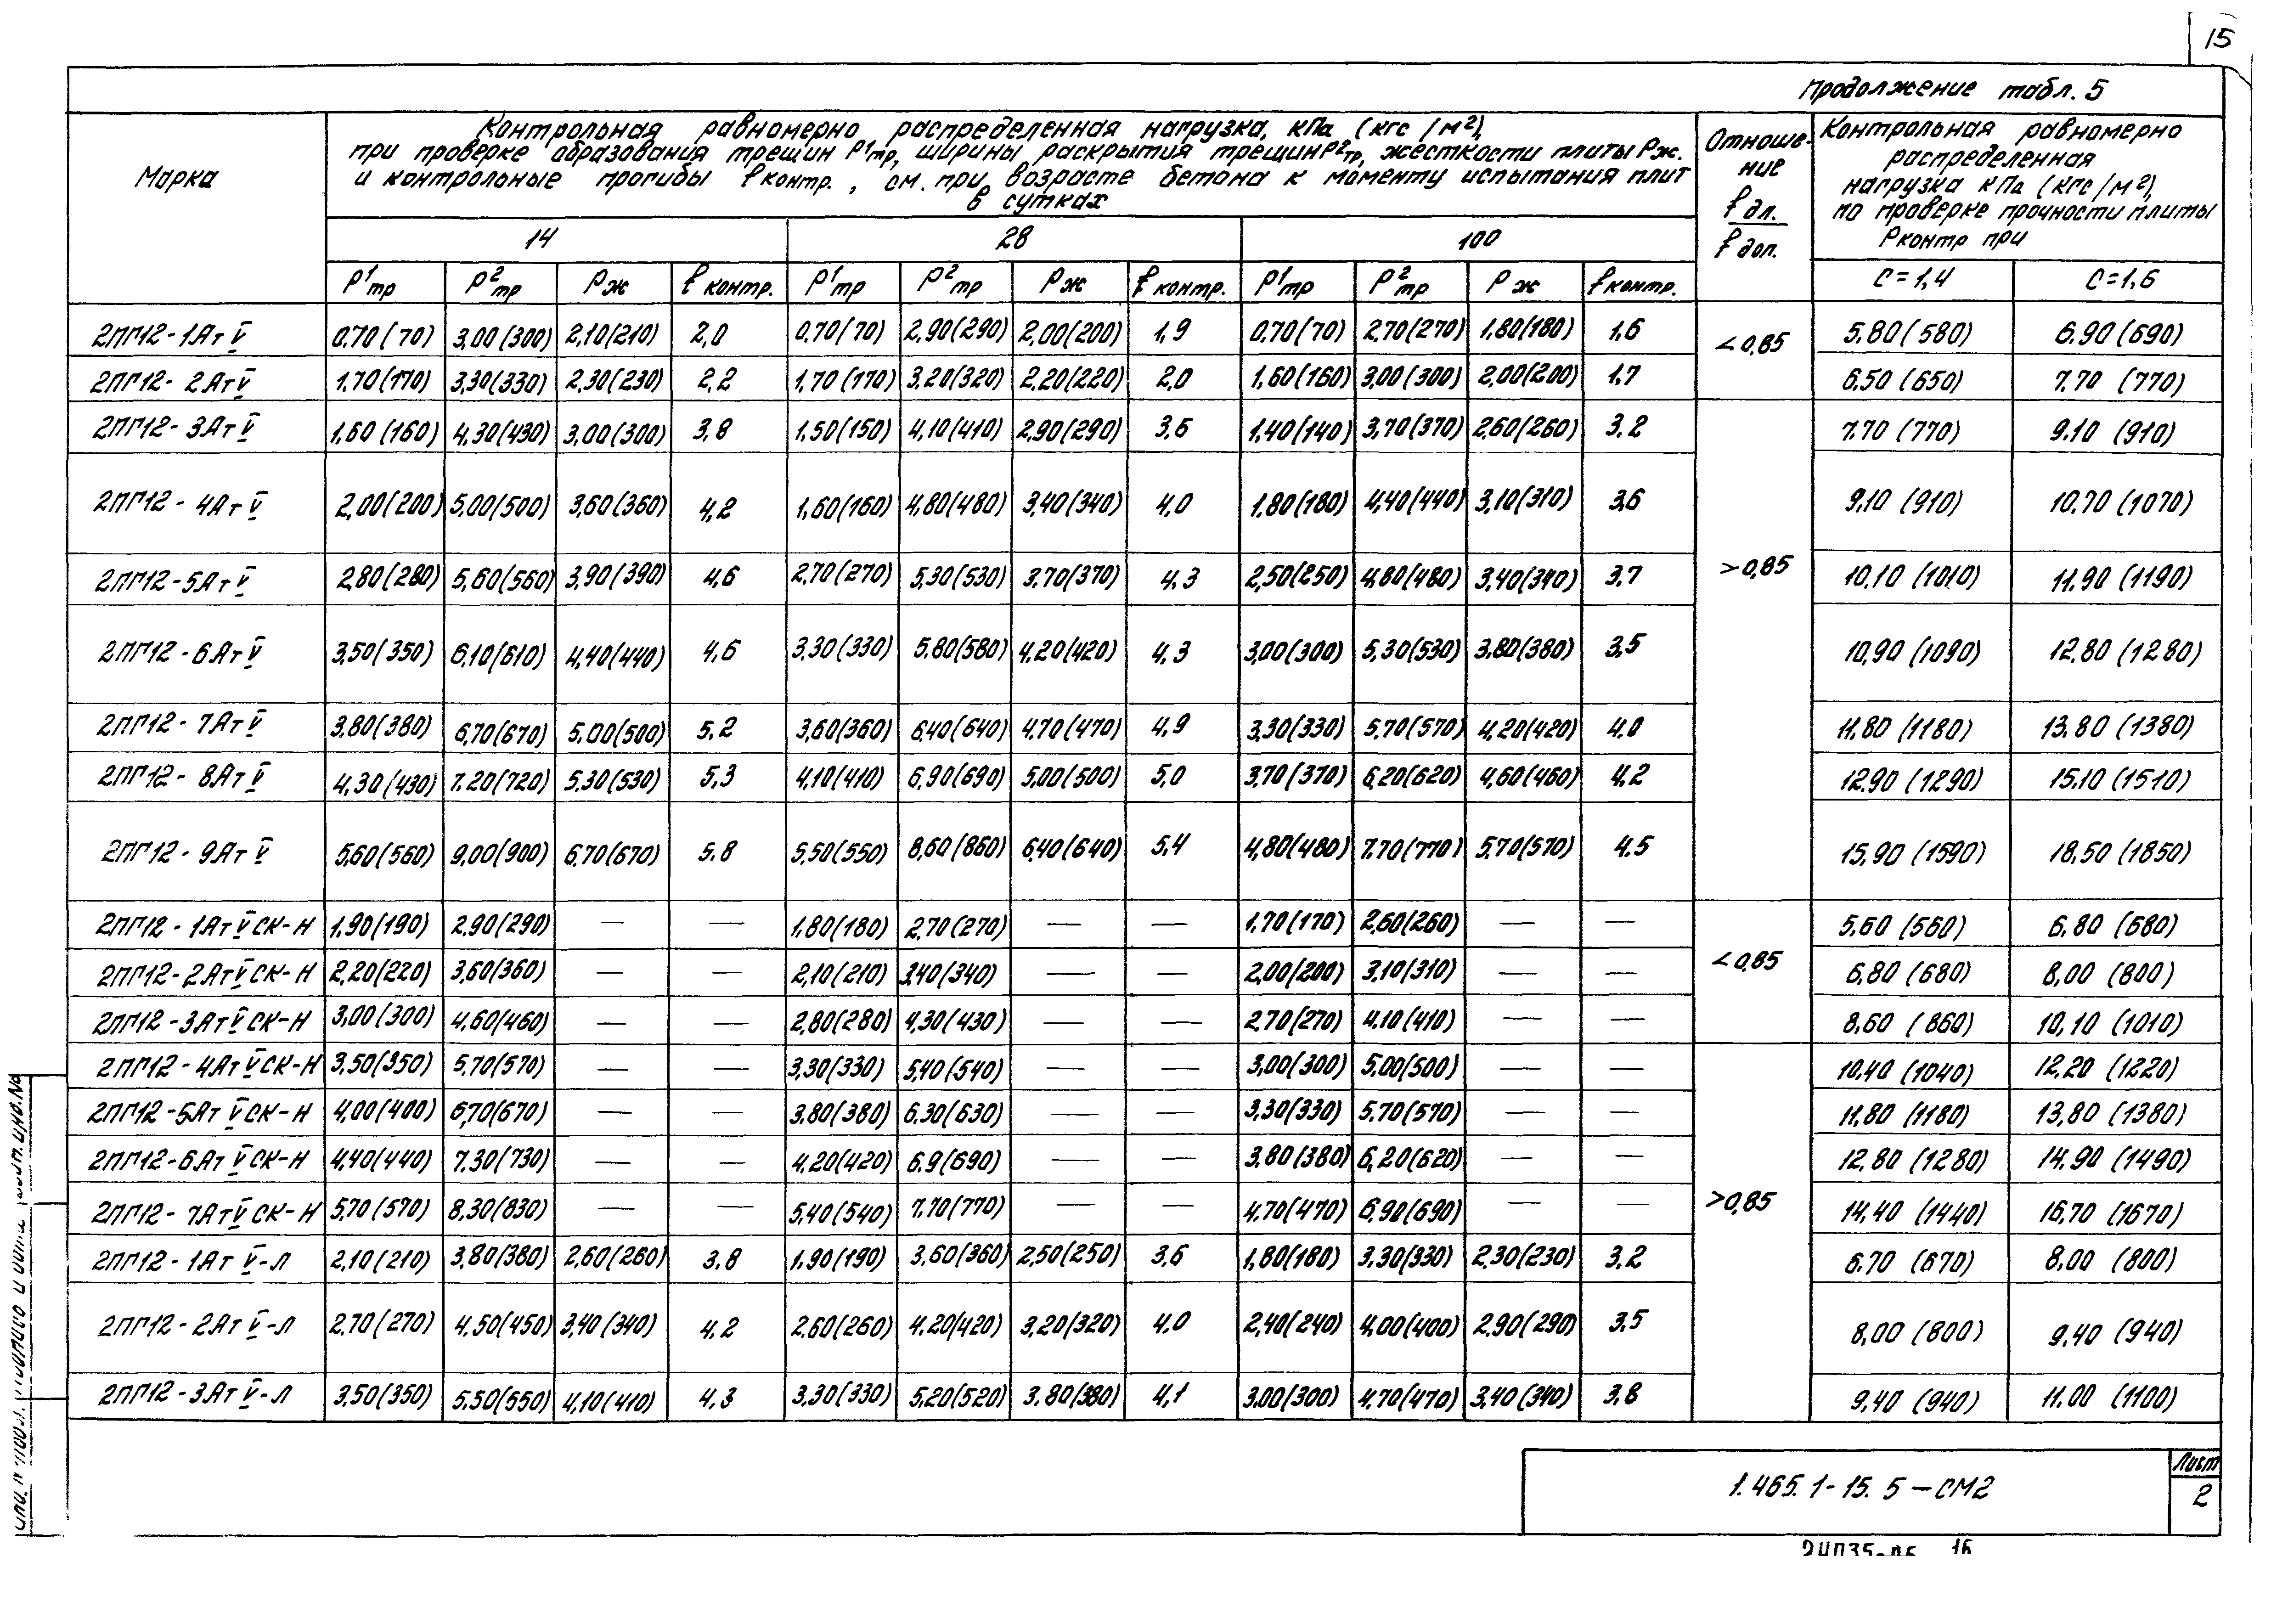 15
Продолжение табл. 5
Марка
Контрольная равномерно распределенная нагрузка, кПа (кгс/м²),
при проверке образования трещин P¹тр, ширины раскрытия трещин P²тр, жесткости плиты Pж.
и контрольные прогибы fконтр., см. при возрасте бетона к моменту испытания плит
в сутках
Отноше-
ние
f дл.
f доп.
Контрольная равномерно
распределенная
нагрузка кПа (кгс/м²),
по проверке прочности плиты
Pконтр при
14 28 100
P¹тр P²тр Pж f контр. P¹тр P²тр Pж f контр. P¹тр P²тр Pж f контр. C=1,4 C=1,6
2ПГ12-1АтV 0,70(70) 3,00(300) 2,10(210) 2,0 0,70(70) 2,90(290) 2,00(200) 1,9 0,70(70) 2,70(270) 1,80(180) 1,6 <0,85 5,80(580) 6,90(690)
2ПГ12-2АтV 1,70(170) 3,30(330) 2,30(230) 2,2 1,70(170) 3,20(320) 2,20(220) 2,0 1,60(160) 3,00(300) 2,00(200) 1,7 6,50(650) 7,70 (770)
2ПГ12-3АтV 1,60(160) 4,30(430) 3,00(300) 3,8 1,50(150) 4,10(410) 2,90(290) 3,6 1,40(140) 3,70(370) 2,60(260) 3,2 7,70 (770) 9,10 (910)
2ПГ12-4АтV 2,00(200) 5,00(500) 3,60(360) 4,2 1,60(160) 4,80(480) 3,40(340) 4,0 1,80(180) 4,40(440) 3,10(310) 3,6 9,10 (910) 10,70 (1070)
2ПГ12-5АтV 2,80(280) 5,60(560) 3,90(390) 4,6 2,70(270) 5,30(530) 3,70(370) 4,3 2,50(250) 4,80(480) 3,40(340) 3,7 >0,85 10,10 (1010) 11,90 (1190)
2ПГ12-6АтV 3,50(350) 6,10(610) 4,40(440) 4,6 3,30(330) 5,80(580) 4,20(420) 4,3 3,00(300) 5,30(530) 3,80(380) 3,5 10,90 (1090) 12,80 (1280)
2ПГ12-7АтV 3,80(380) 6,70(670) 5,00(500) 5,2 3,60(360) 6,40(640) 4,70(470) 4,9 3,30(330) 5,70(570) 4,20(420) 4,0 11,80 (1180) 13,80 (1380)
2ПГ12-8АтV 4,30(430) 7,20(720) 5,30(530) 5,3 4,10(410) 6,90(690) 5,00(500) 5,0 3,70(370) 6,20(620) 4,60(460) 4,2 12,90 (1290) 15,10 (1510)
2ПГ12-9АтV 5,60(560) 9,00(900) 6,70(670) 5,8 5,50(550) 8,60(860) 6,40(640) 5,4 4,80(480) 7,70(770) 5,70(570) 4,5 15,90 (1590) 18,50 (1850)
2ПГ12-1АтVСК-Н 1,90(190) 2,90(290) — — 1,80(180) 2,70(270) — — 1,70(170) 2,60(260) — — 5,60 (560) 6,80 (680)
2ПГ12-2АтVСК-Н 2,20(220) 3,60(360) — — 2,10(210) 3,40(340) — — 2,00(200) 3,10(310) — — <0,85 6,80 (680) 8,00 (800)
2ПГ12-3АтVСК-Н 3,00(300) 4,60(460) — — 2,80(280) 4,30(430) — — 2,70(270) 4,10(410) — — 8,60 (860) 10,10 (1010)
2ПГ12-4АтVСК-Н 3,50(350) 5,70(570) — — 3,30(330) 5,40(540) — — 3,00(300) 5,00(500) — — 10,40 (1040) 12,20 (1220)
2ПГ12-5АтVСК-Н 4,00(400) 6,70(670) — — 3,80(380) 6,30(630) — — 3,30(330) 5,70(570) — — 11,80 (1180) 13,80 (1380)
2ПГ12-6АтVСК-Н 4,40(440) 7,30(730) — — 4,20(420) 6,9(690) — — 3,80(380) 6,20(620) — — 12,80 (1280) 14,90 (1490)
2ПГ12-7АтVСК-Н 5,70(570) 8,30(830) — — 5,40(540) 7,70(770) — — 4,70(470) 6,90(690) — — >0,85 14,40 (1440) 16,70 (1670)
2ПГ12-1АтV-Л 2,10(210) 3,80(380) 2,60(260) 3,8 1,90(190) 3,60(360) 2,50(250) 3,6 1,80(180) 3,30(330) 2,30(230) 3,2 6,70 (670) 8,00 (800)
2ПГ12-2АтV-Л 2,70(270) 4,50(450) 3,40(340) 4,2 2,60(260) 4,20(420) 3,20(320) 4,0 2,40(240) 4,00(400) 2,90(290) 3,5 8,00 (800) 9,40 (940)
2ПГ12-3АтV-Л 3,50(350) 5,50(550) 4,10(410) 4,3 3,30(330) 5,20(520) 3,80(380) 4,1 3,00(300) 4,70(470) 3,40(340) 3,8 9,40 (940) 11,00 (1100)
1.465.1-15.5-СМ2
Лист
2
16